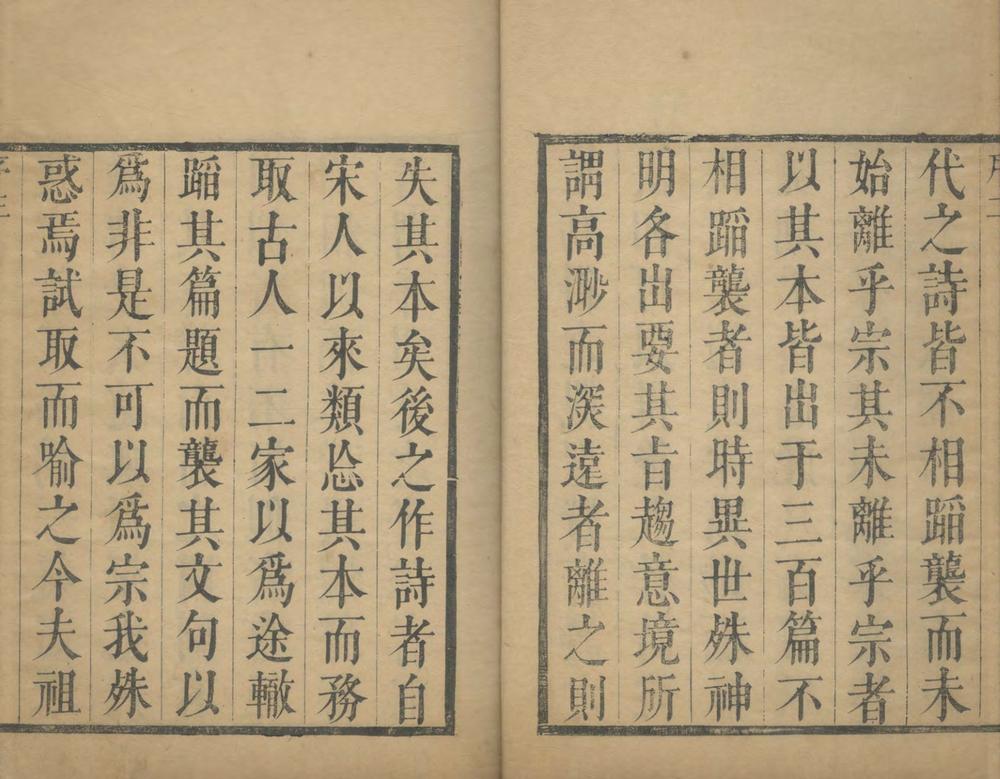 代之詩皆不相蹈襲而未
始離乎宗其未離乎宗者
以其本皆出于三百篇不
相蹈襲者則時異世殊神
明各出要其旨趨意境所
謂高渺而深遠者離之則
失其本矣後之作詩者自
宋人以來類忘其本而務
取古人一二家以為途轍
蹈其篇題而襲其文句以
爲非是不可以爲宗我殊
惑焉試取而喻之今夫祖